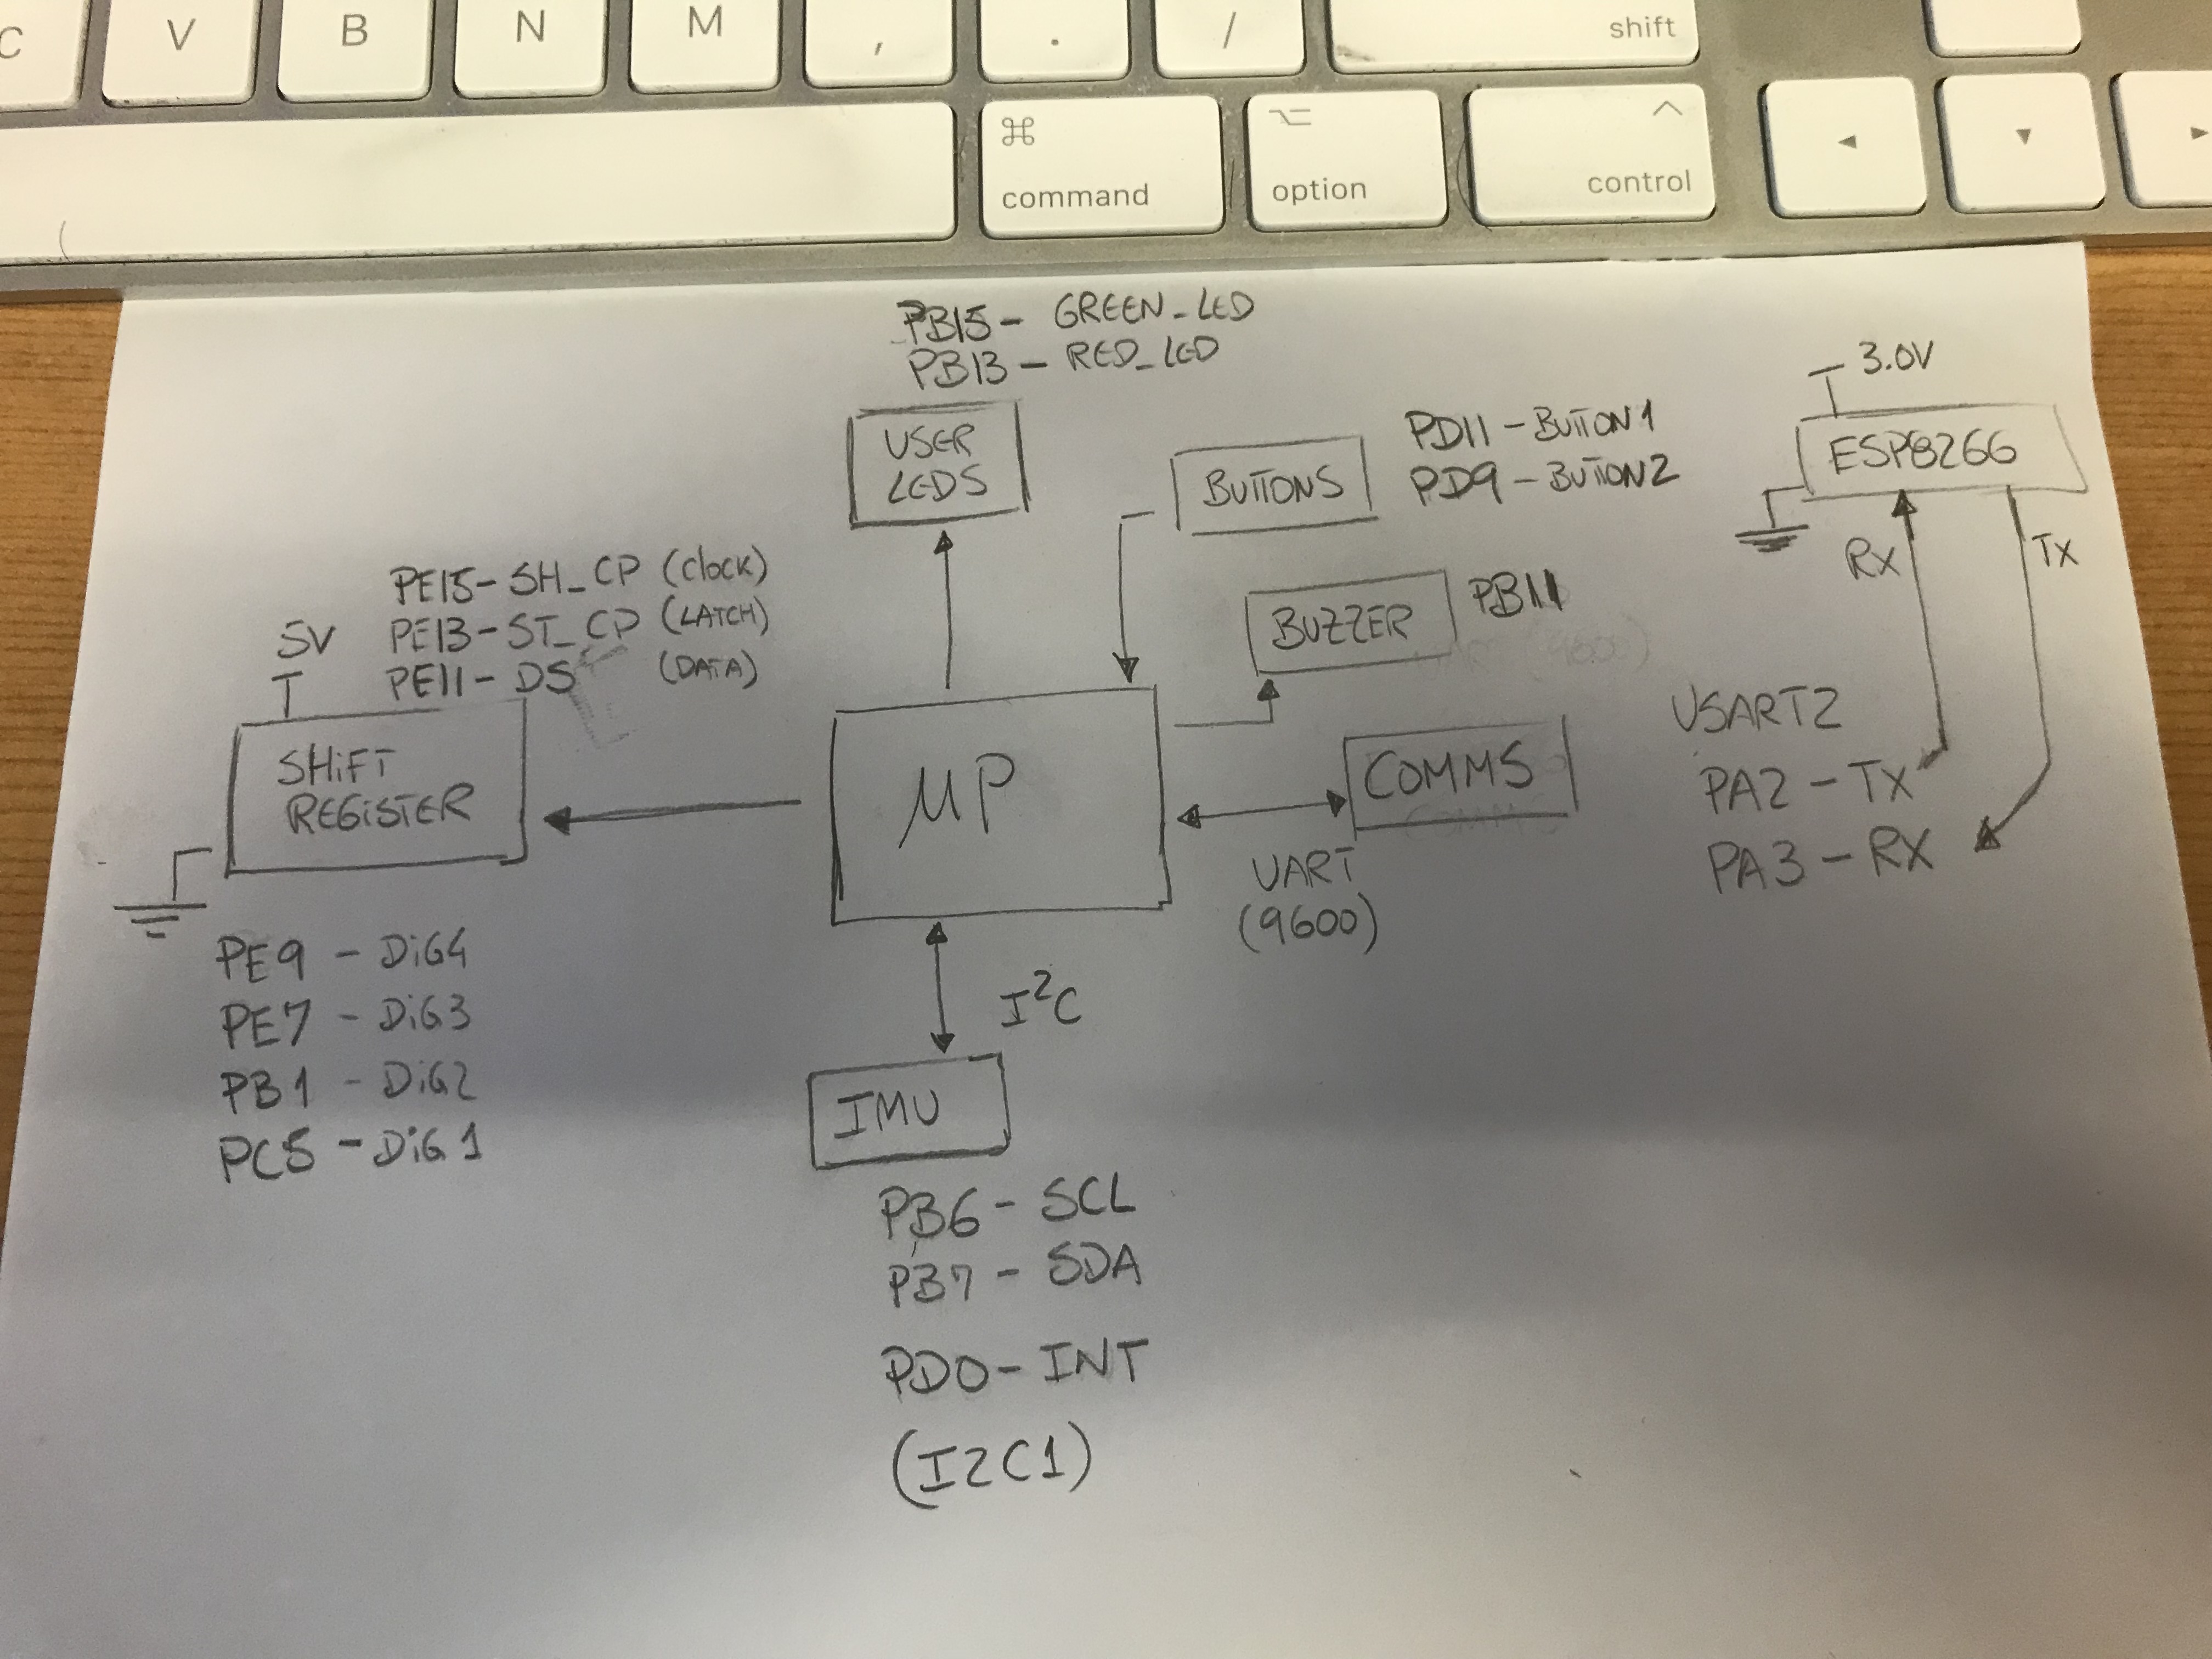 C V B N M , . / shift
⌘ command
⌥ option
^ control
◄ ▼ ►
PB15 - GREEN_LED
PB13 - RED_LED
USER
LEDS
BUTTONS
PD11 - BUTTON1
PD9 - BUTTON2
3.0V
ESP8266
Rx
Tx
BUZZER
PB11
PE15 - SH_CP (Clock)
PE13 - ST_CP (LATCH)
PE11 - DS (DATA)
5V
SHiFT
REGiSTER
μP
COMMS
UART
(9600)
USART2
PA2 - Tx
PA3 - RX
PE9 - DiG4
PE7 - DiG3
PB1 - DiG2
PC5 - DiG1
I²C
IMU
PB6 - SCL
PB7 - SDA
PD0 - INT
(I2C1)